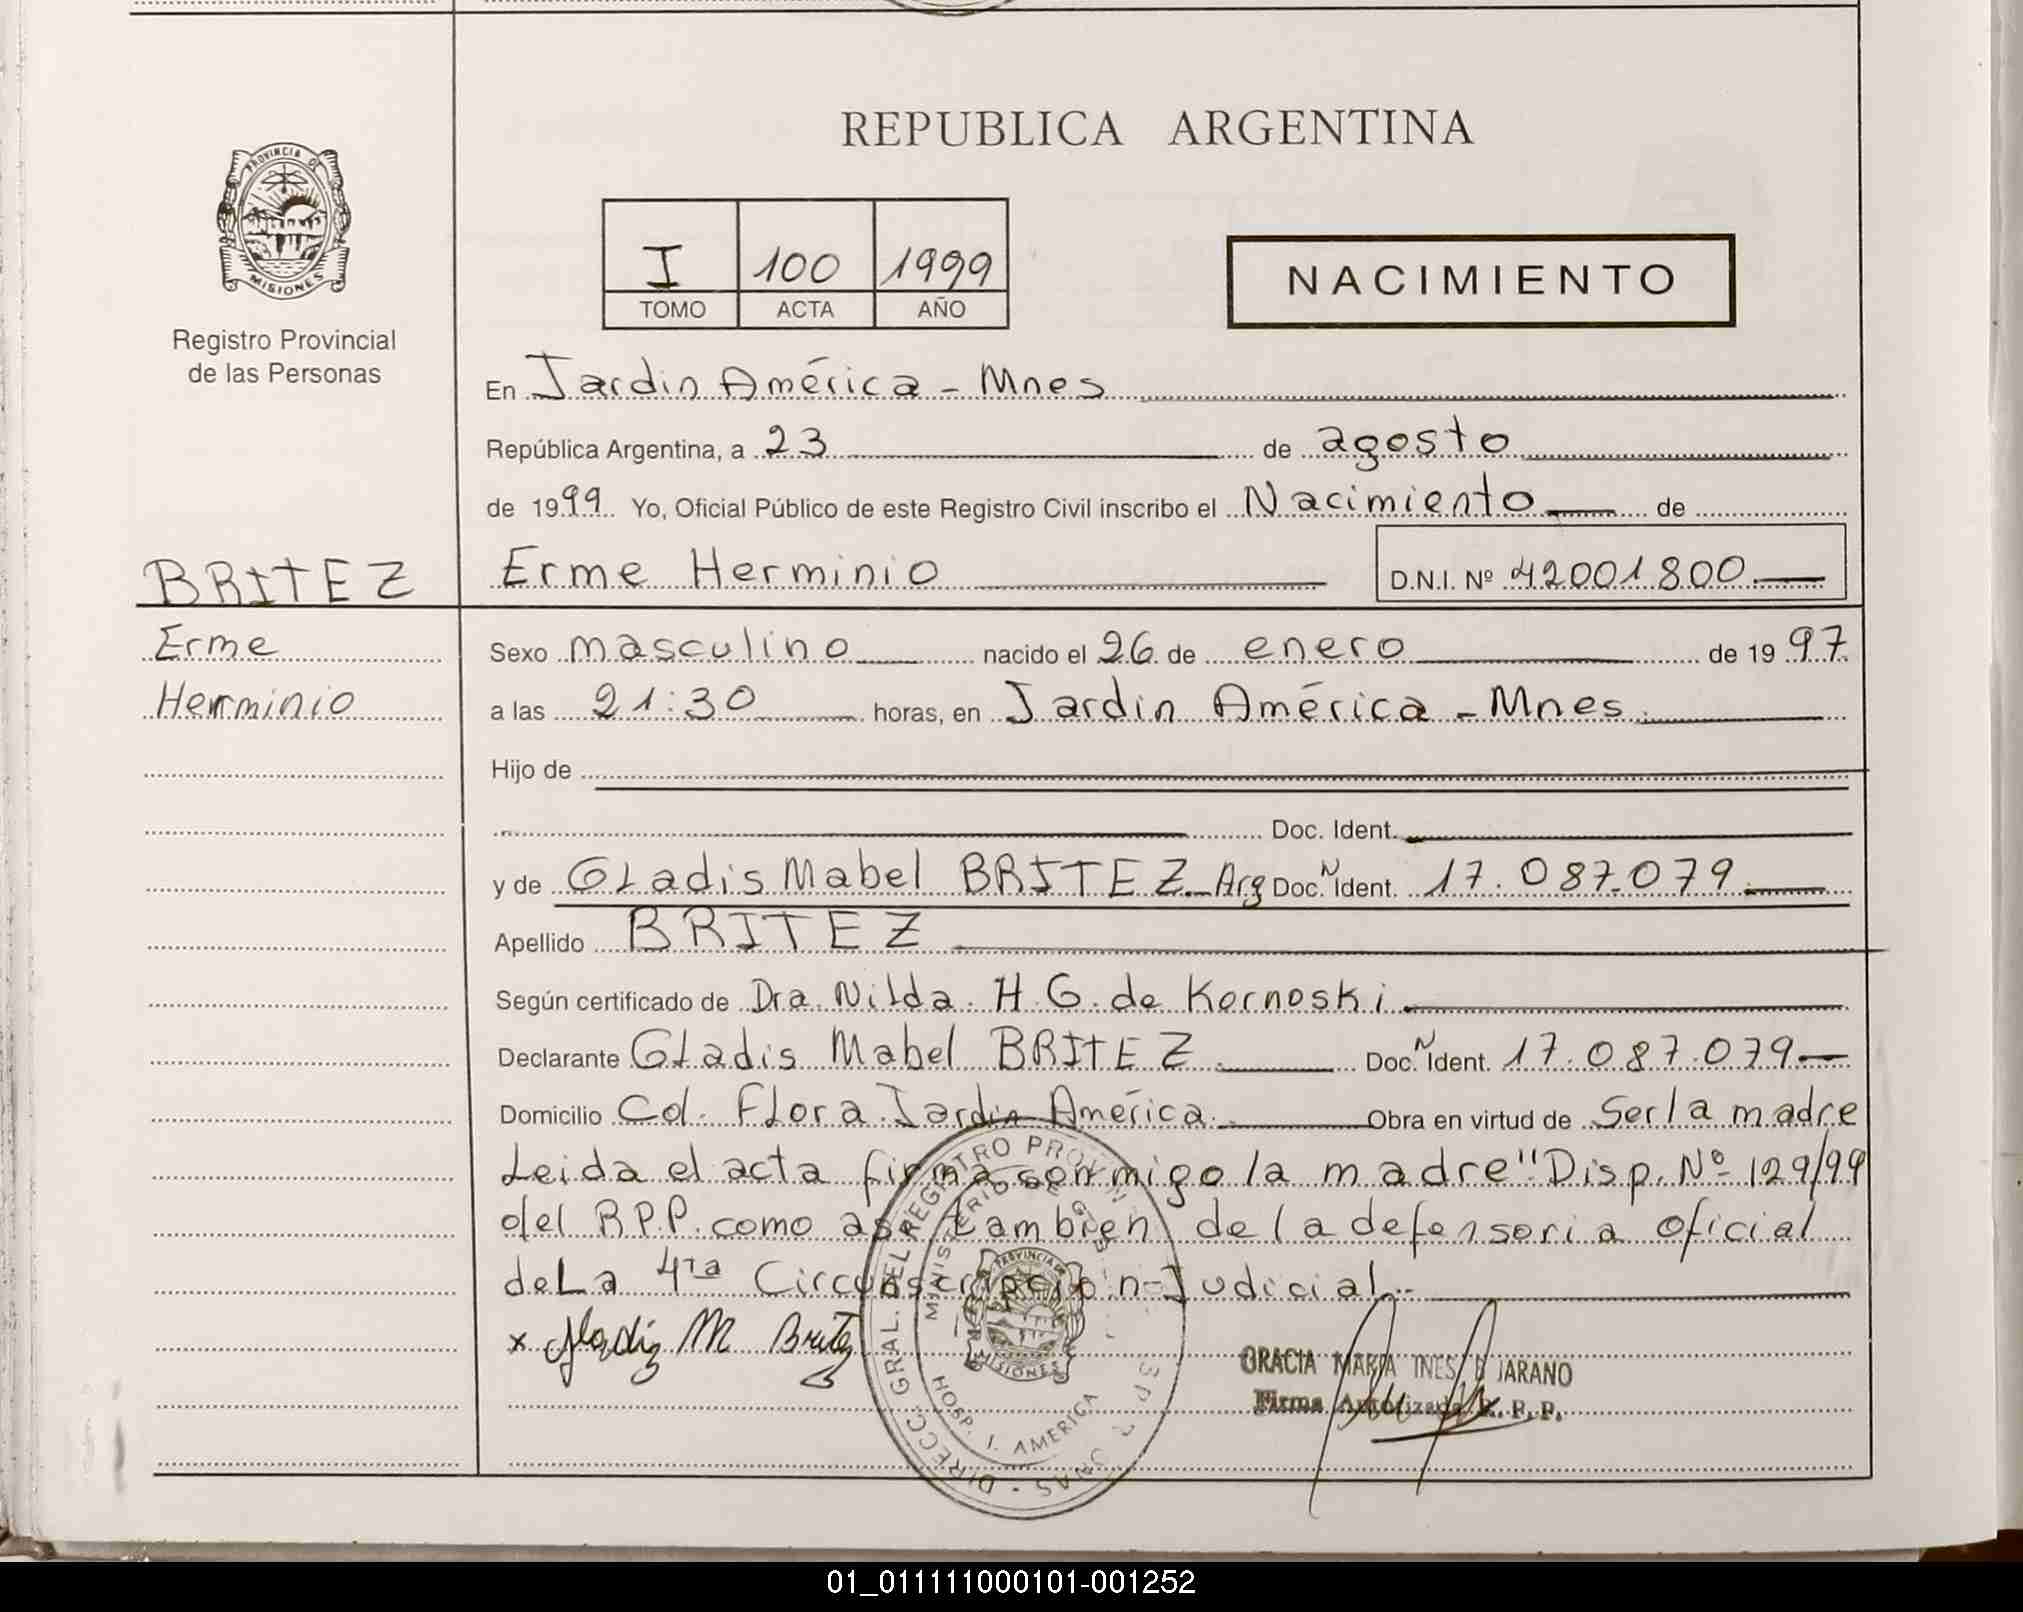 REPUBLICA ARGENTINA
PROVINCIA DE
MISIONES
Registro Provincial
de las Personas
I 100 1999
TOMO ACTA AÑO
NACIMIENTO
En Jardin América - Mnes
República Argentina, a 23 de agosto
de 1999 Yo, Oficial Público de este Registro Civil inscribo el Nacimiento de
BRITEZ
Erme Herminio D.N.I. Nº 42001800
Erme
Herminio
Sexo masculino nacido el 26 de enero de 1997
a las 21:30 horas, en Jardin América - Mnes.
Hijo de
Doc. Ident.
y de Gladis Mabel BRITEZ - Arg Doc. N Ident. 17.087.079
Apellido BRITEZ
Según certificado de Dra. Nilda. H. G. de Kornoski
Declarante Gladis Mabel BRITEZ. Doc. N Ident. 17.087.079
Domicilio Col. Flora. Jardin América. Obra en virtud de Ser la madre
Leida el acta firma conmigo la madre "Disp. Nº 129/99
del R.P.P. como asi tambien de la defensoria oficial
de La 4ta Circunscripción Judicial.-
x Gladiz M Britez
GRACIA MARIA INES B JARANO
Firma Autorizada R. P. P.
DIRECC. GRAL. DEL REGISTRO PROVIN
MINISTERIO DE GOB
PROVINCIA DE
MISIONES
HOSP. J. AMERICA
01_011111000101-001252